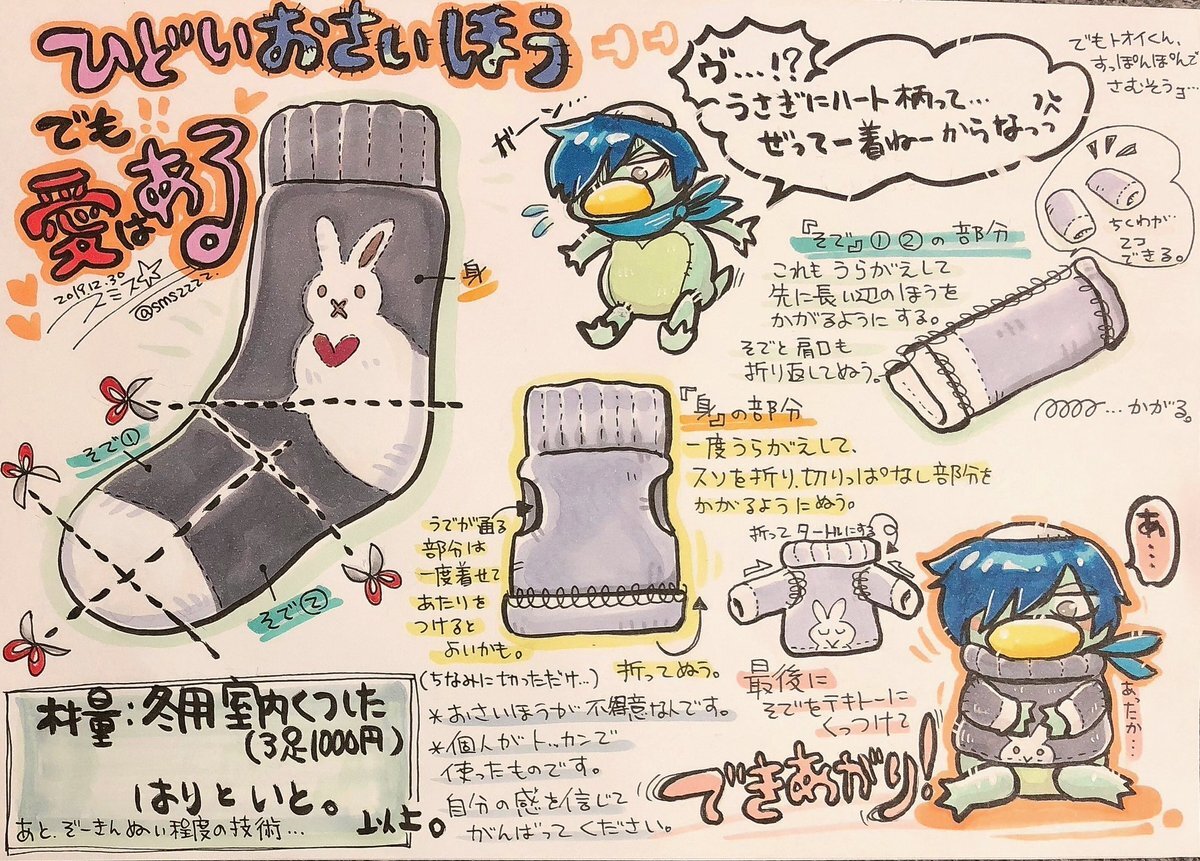 ひどいおさいほう
でも
愛はある
2019.12.30
スミス☆
@sms222z
身
そで①
そで②
ガーン
ヴ…!?
うさぎにハート柄って…
ぜってー着ねーからなっっ
でもトオイくん、
すっぽんぽんで
さむそうョ…
ちくわが
てコ
できる。
『そで』①②の部分
これもうらがえして
先に長い辺のほうを
かがるようにする。
そでと肩口も
折り返してぬう。
…かがる。
『身』の部分
一度うらがえして、
スソを折り、切りっぱなし部分を
かがるようにぬう。
うでが通る
部分は
一度着せて
あたりを
つけると
よいかも。
(ちなみに切っただけ…)
折ってぬう。
折ってタートルにする
最後に
そでをテキトーに
くっつけて
できあがり!
あ…
あったか…
*おさいほうが不得意なんです。
*個人がトッカンで
使ったものです。
自分の感を信じて
がんばってください。
材量:冬用室内くつした
(3足1000円)
はりといと。
あと、ぞーきんぬい程度の技術…
以上。